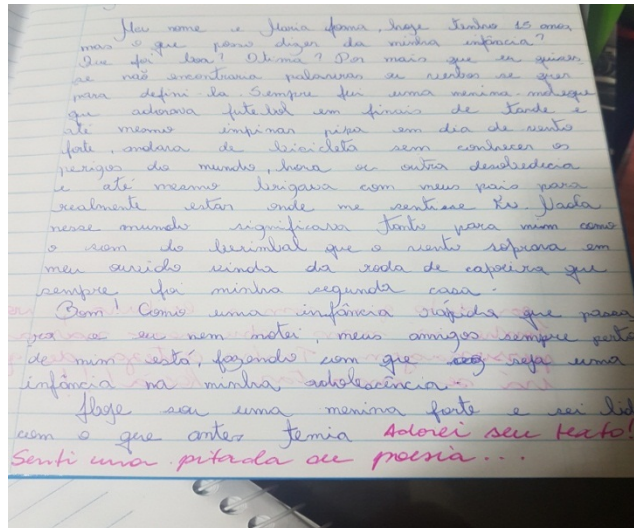 Meu nome e Maria Joana, hoje tenho 15 anos,
mas o que posso dizer da minha infância?
Que foi boa? Otima? Por mais que eu quises
se não encontraria palavras ou verbos se quer
para defini-la. Sempre fui uma menina-moleque
que adorava futebol em finais de tarde e
até mesmo impinar pipa em dia de vento
forte, andara de bicicleta sem conhecer os
perigos do mundo, hora ou outra desobedecia
e até mesmo brigava com meus pais para
realmente estar onde me sentisse Eu. Nada
nesse mundo significava tanto para mim como
o som do berimbal que o vento soprava em
meu ouvido vinda da roda de capoeira que
sempre foi minha segunda casa.
Bom! Como uma infância rápida que passa
eu nem notei, meus amigos sempre perto
de mim está, fazendo com que seja uma
infância na minha adolescência.
Hoje sou uma menina forte e sei lid
com o que antes temia Adorei seu texto!
Senti uma pitada de poesia...